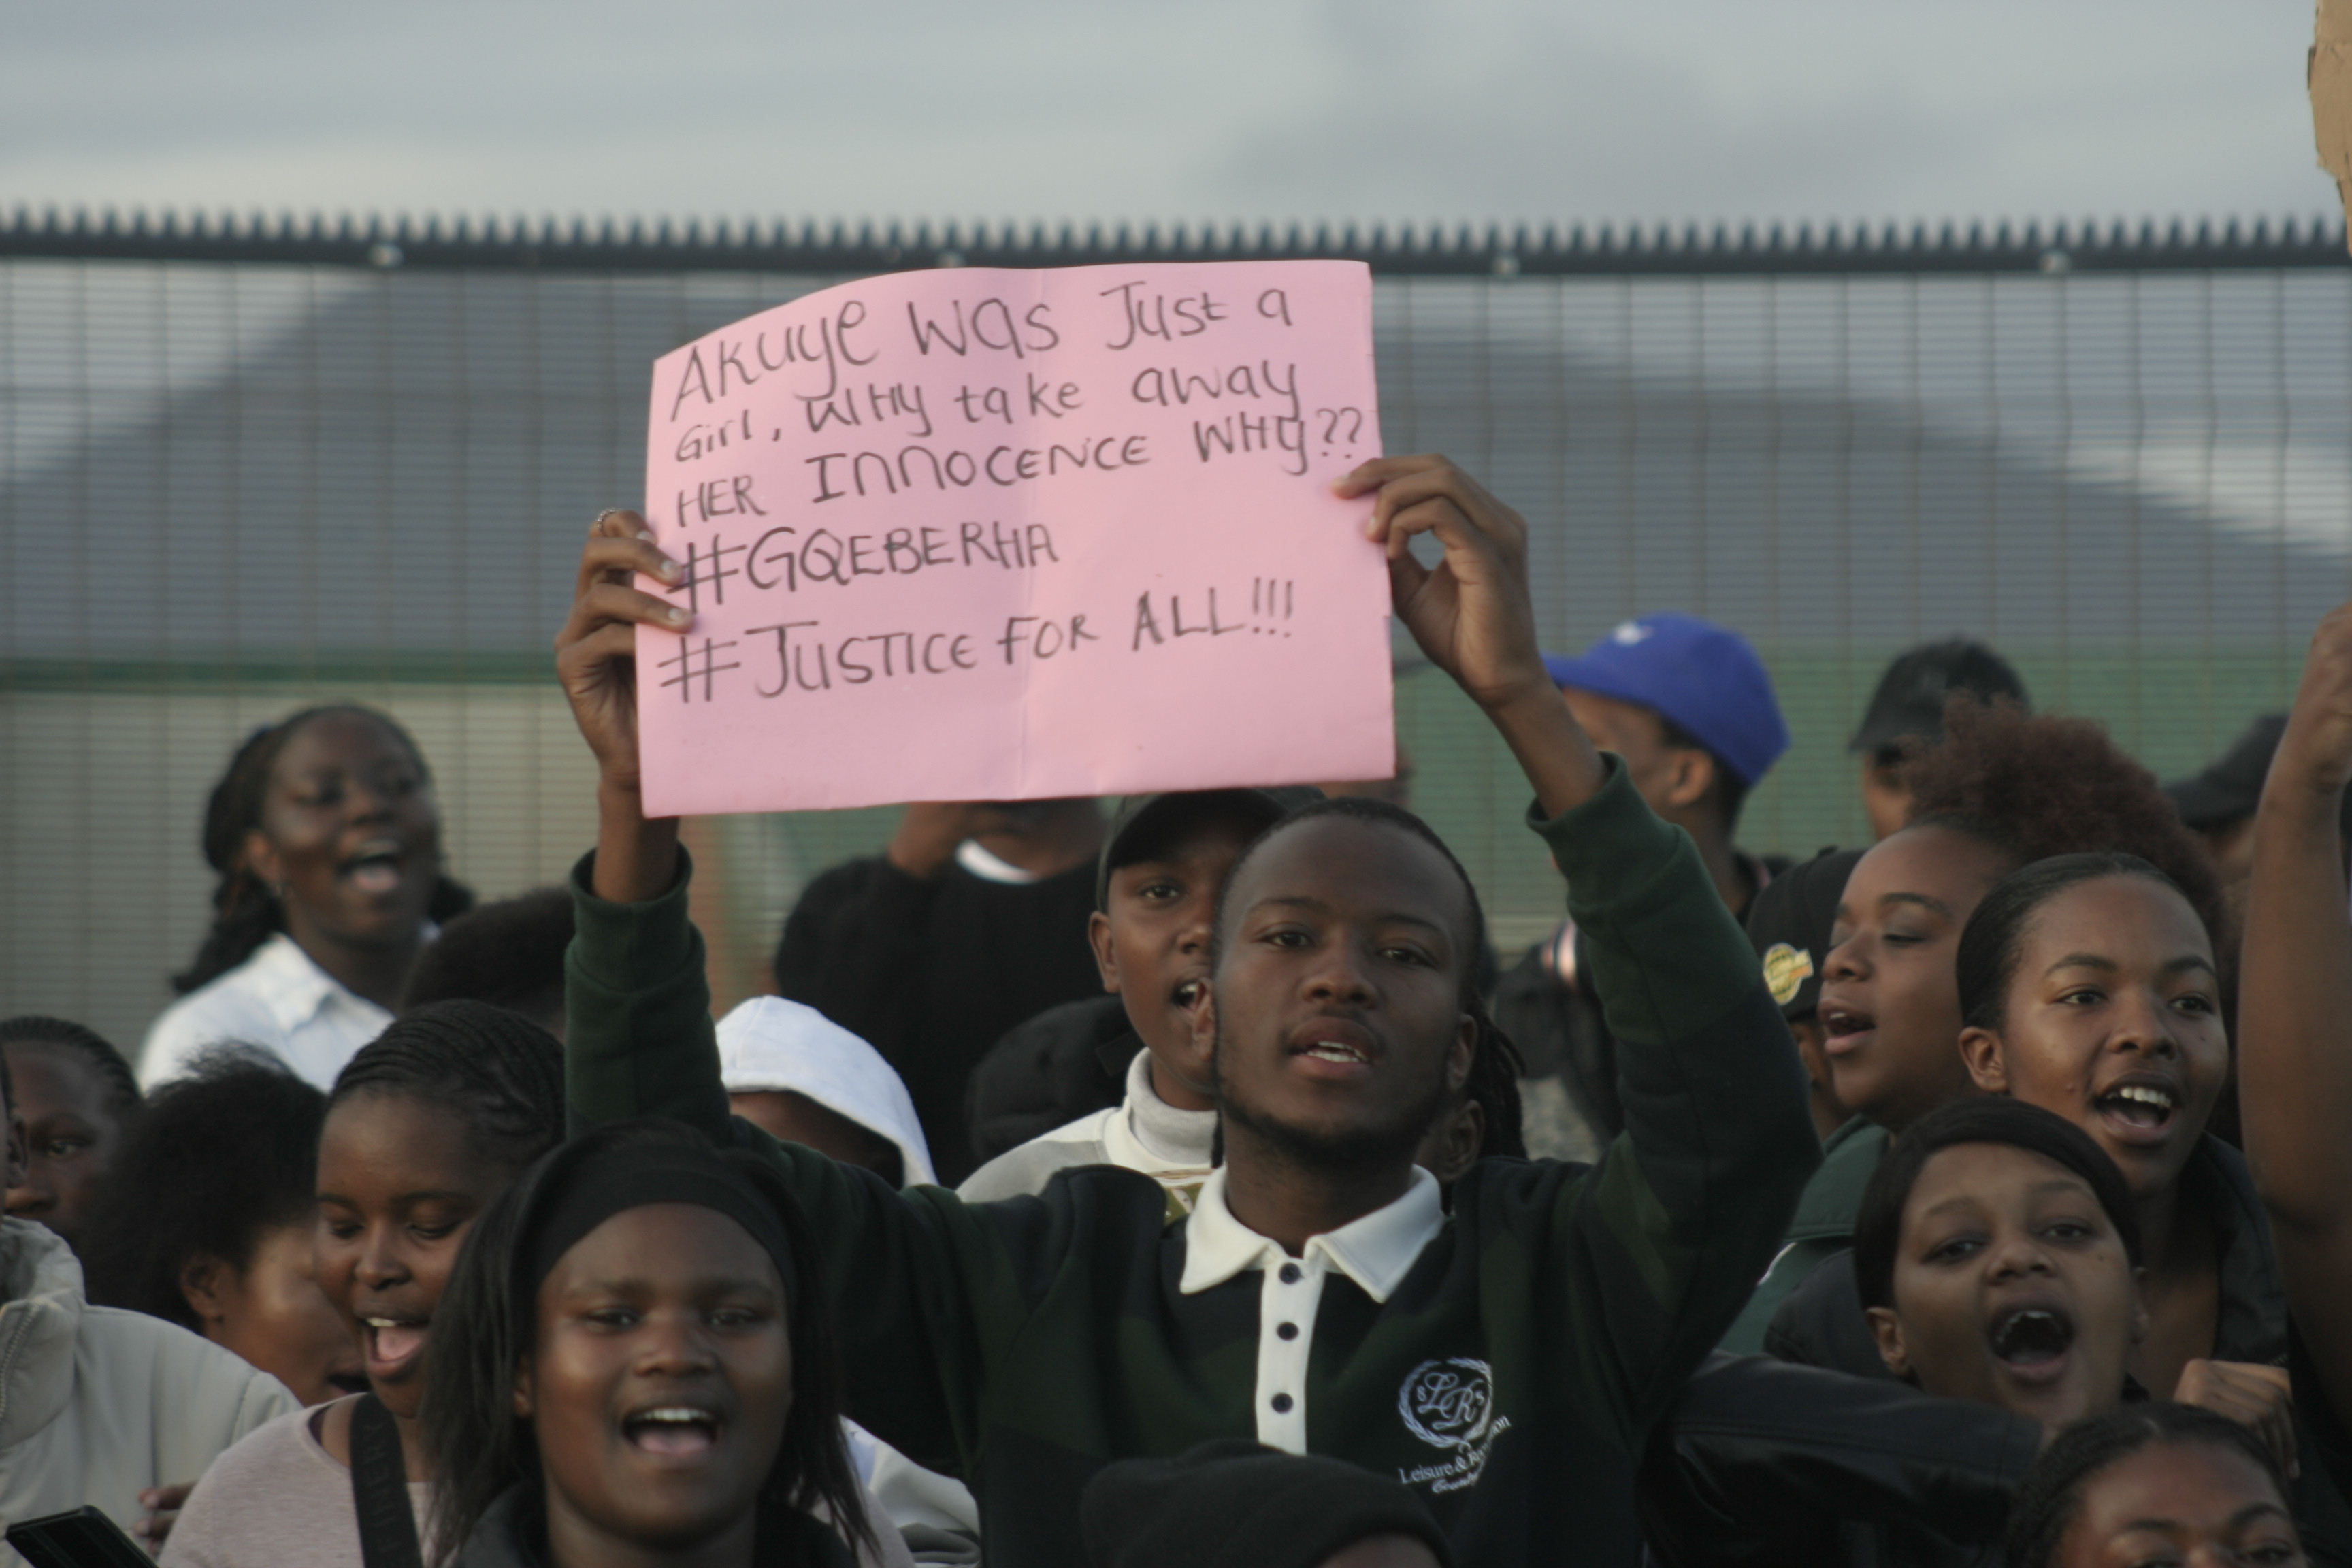 Akuye was Just a
Girl, WHy take away
HER INNOCENCE WHy??
#GQEBERHA
#JUSTICE FOR ALL!!!
LR
Leisure &